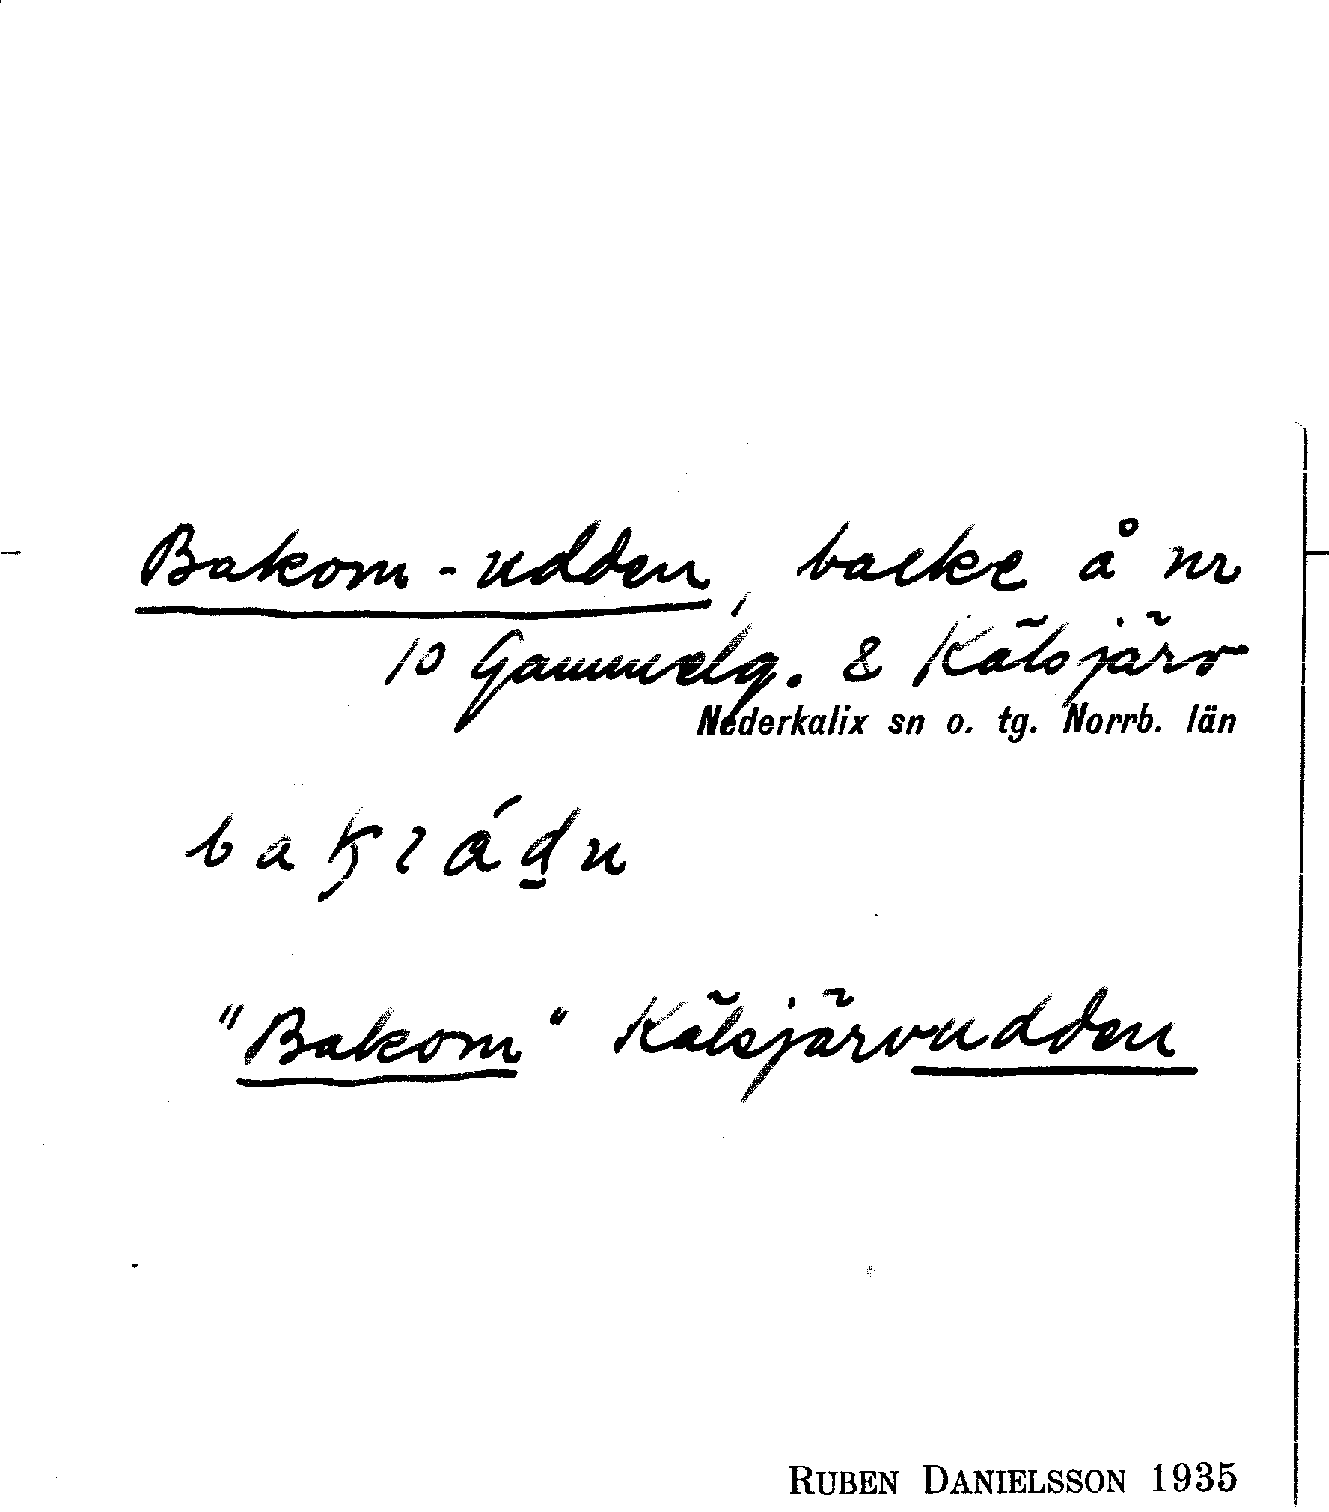 Bakom-udden, backe å nr
10 Gammelg. & Kälsjärv
Nederkalix sn o. tg. Norrb. län
"Bakom" Kälsjärvudden
RUBEN DANIELSSON 1935